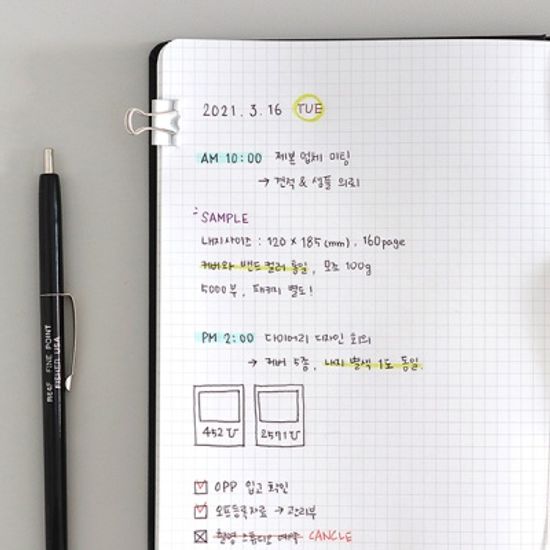 2021. 3. 16 TUE
AM 10:00 제본 업체 미팅
→ 견적 & 샘플 의뢰
SAMPLE
내지사이즈 : 120 × 185 (mm), 160page
커버와 밴드 컬러 동일, 모조 100g
5000부, 패키지 별도!
PM 2:00 다이어리 디자인 회의
→ 커버 5종, 내지 별색 1도 동일.
452U 2571U
OPP 입고 확인
오프등록자료 → 관리부
촬영 스튜디오 예약 CANCLE
FINE POINT
FISHER USA